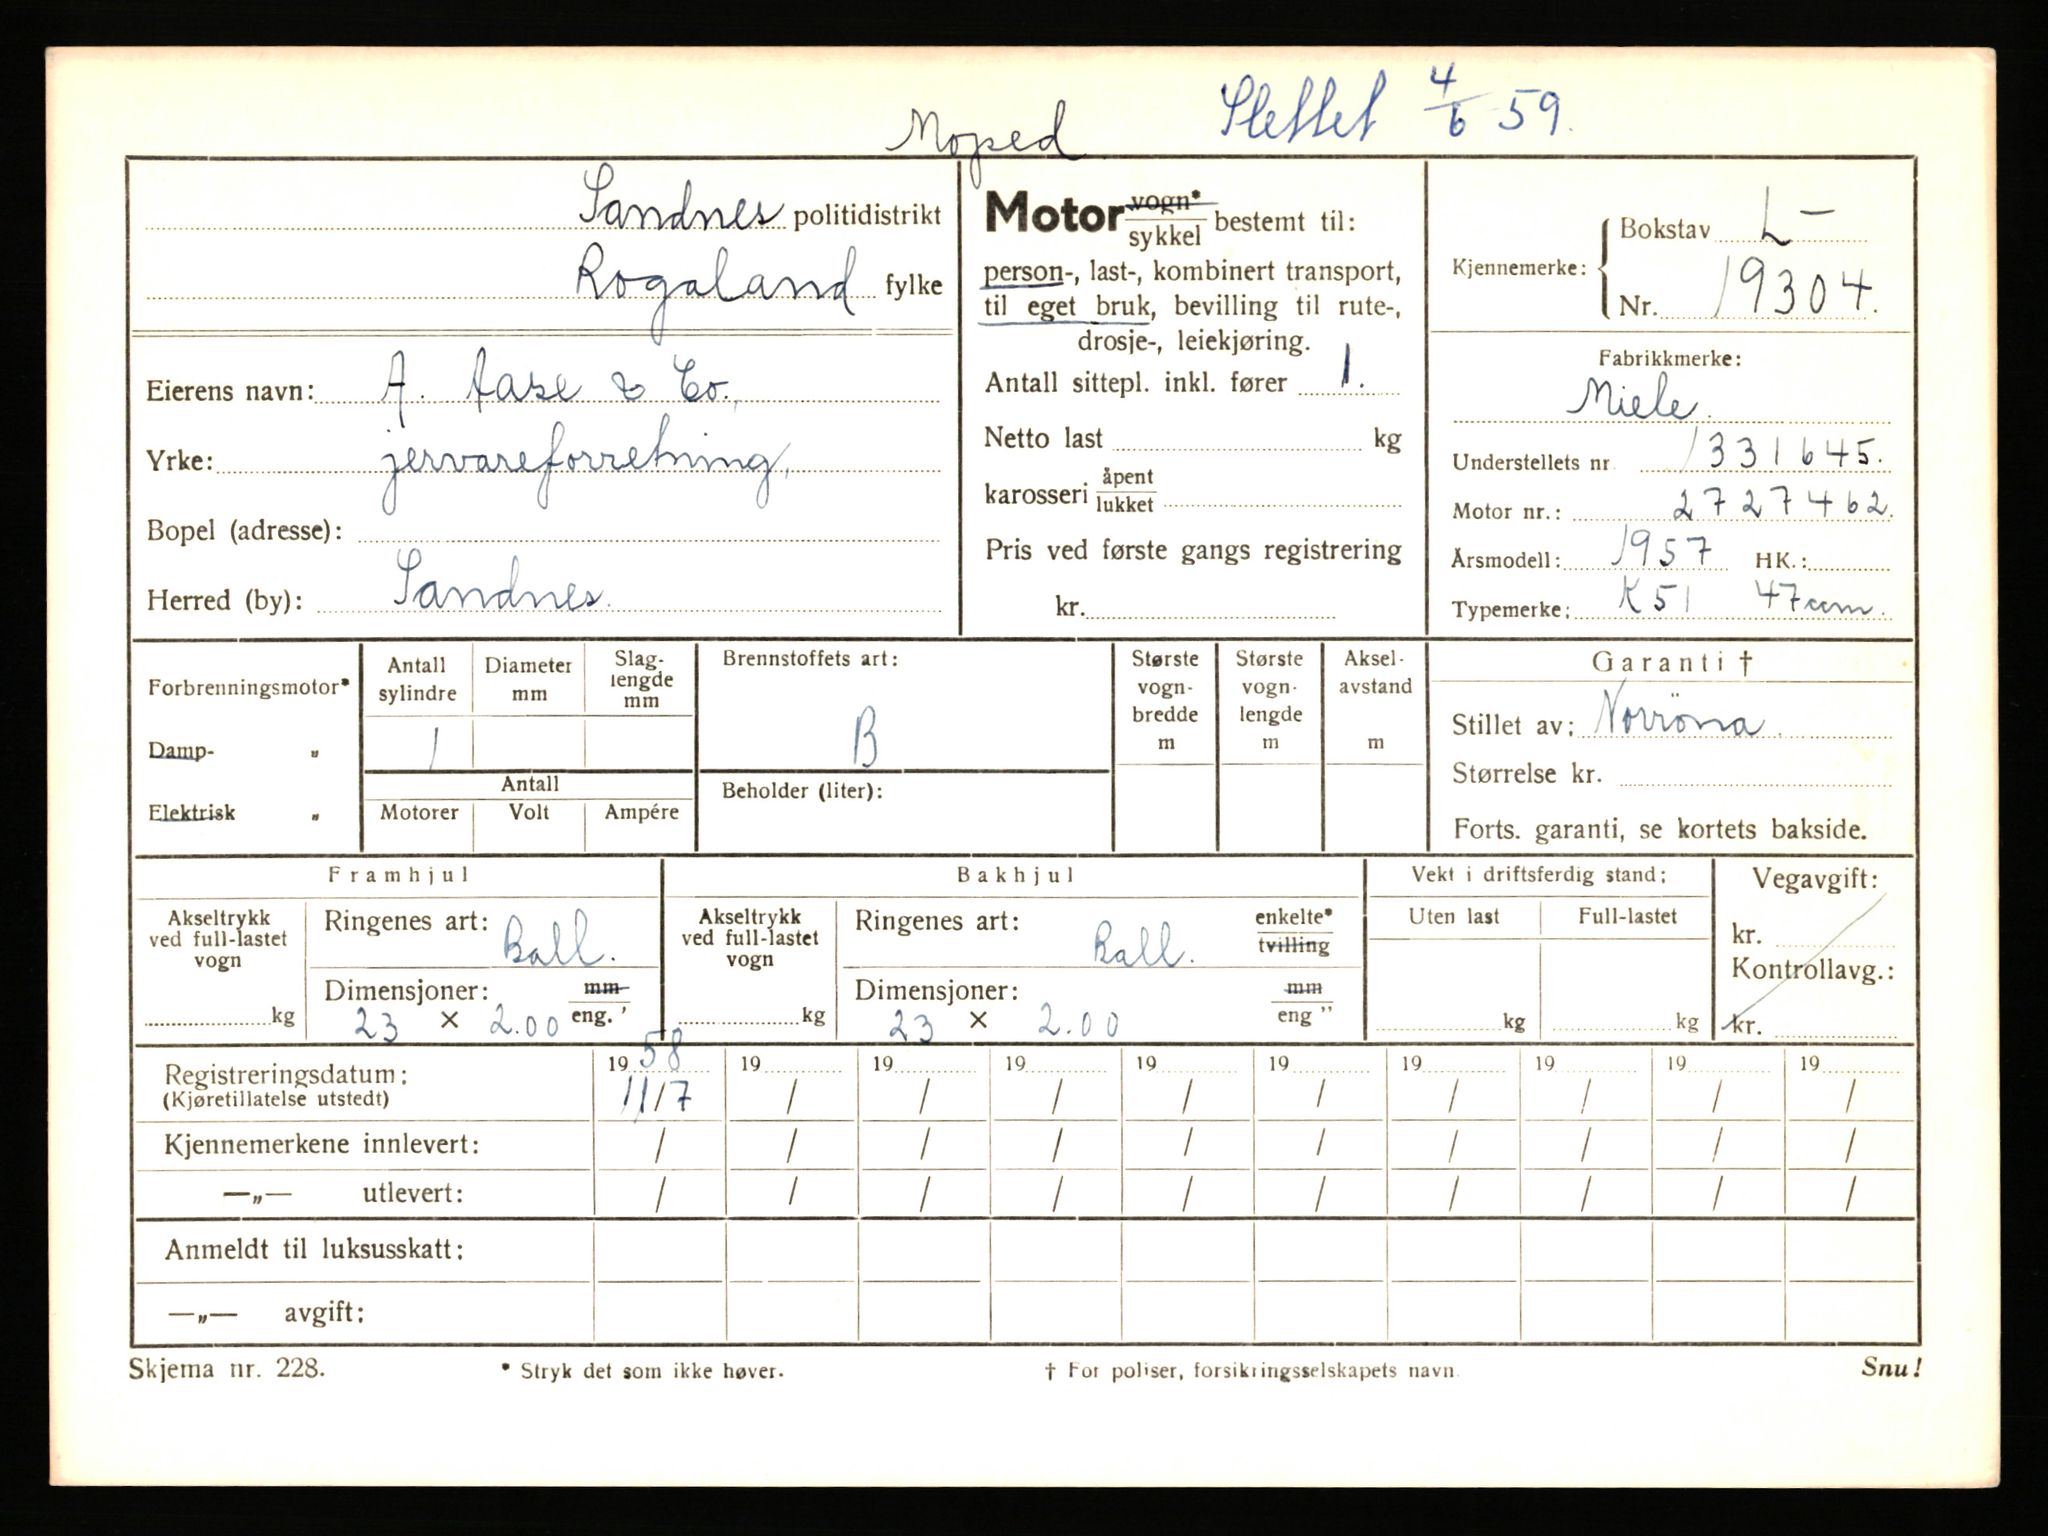 Moped Slettet 4/6 59.
Sandnes politidistrikt
Rogaland fylke
Eierens navn: A. Aase & Co.,
Yrke: jervareforretning,
Bopel (adresse):
Herred (by): Sandnes.
Motor vogn*/sykkel bestemt til:
person-, last-, kombinert transport,
til eget bruk, bevilling til rute-,
drosje-, leiekjøring.
Antall sittepl. inkl. fører 1.
Netto last kg
karosseri åpent/lukket
Pris ved første gangs registrering
kr.
Kjennemerke: { Bokstav L-
Nr. 19304.
Fabrikkmerke:
Miele.
Understellets nr 1331645.
Motor nr.: 2727462.
Årsmodell: 1957 HK.:
Typemerke: K51 47 ccm.
Forbrenningsmotor*
Damp- „
Elektrisk „
Antall sylindre
1
Diameter mm
Slag-
lengde
mm
Antall
Motorer Volt Ampére
Brennstoffets art:
B
Beholder (liter):
Største
vogn-
bredde
m
Største
vogn-
lengde
m
Aksel-
avstand
m
Garanti †
Stillet av: Norröna.
Størrelse kr.
Forts. garanti, se kortets bakside.
Framhjul
Akseltrykk
ved full-lastet
vogn
kg
Ringenes art: Ball.
Dimensjoner: mm/eng. '
23 × 2.00
Bakhjul
Akseltrykk
ved full-lastet
vogn
kg
Ringenes art: Ball. enkelte*/tvilling
Dimensjoner: mm/eng "
23 × 2.00
Vekt i driftsferdig stand:
Uten last Full-lastet
kg kg
Vegavgift:
kr.
Kontrollavg.:
kr.
Registreringsdatum: 1958 19 19 19 19 19 19 19 19 19
(Kjøretillatelse utstedt) 11/7 / / / / / / / / /
Kjennemerkene innlevert: / / / / / / / / / /
—„— utlevert: / / / / / / / / / /
Anmeldt til luksusskatt:
—„— avgift:
Skjema nr. 228. * Stryk det som ikke høver. † For poliser, forsikringsselskapets navn. Snu!